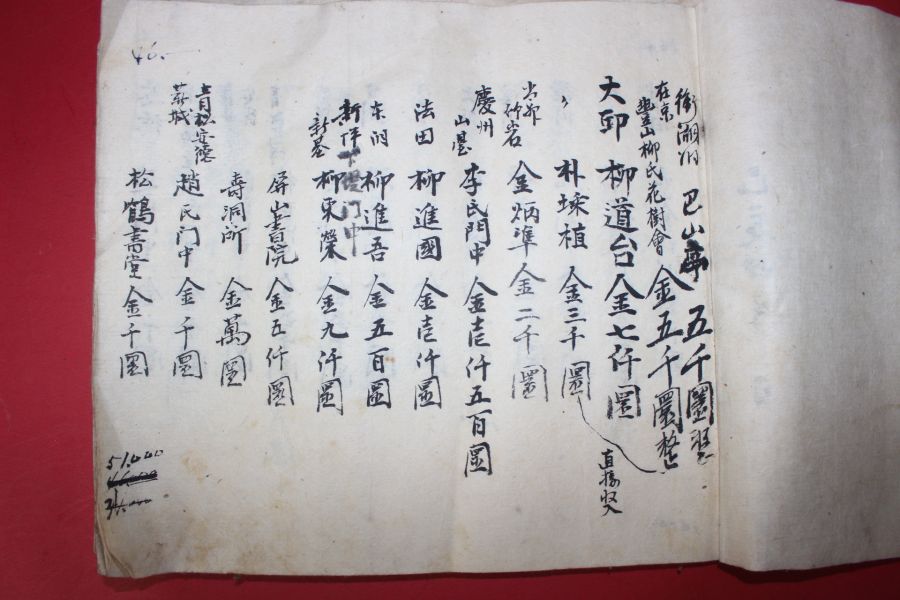 巴山亭 五千圜整
在京
豊山柳氏花樹會 金五千圜整
大邱 柳道台 金七仟圜
〃 朴埰植 金三千圜
直接収入
金炳準 金二千圜
慶州
山臺 李氏門中 金壱仟五百圜
法田 柳進國 金壱仟圜
柳進吾 金五百圜
新基 柳東榮 金九仟圜
屏山書院 金五仟圜
壽洞所 金萬圜
青松安德
趙氏门中 金千圜
松鶴書堂 金千圜
46.
51,000